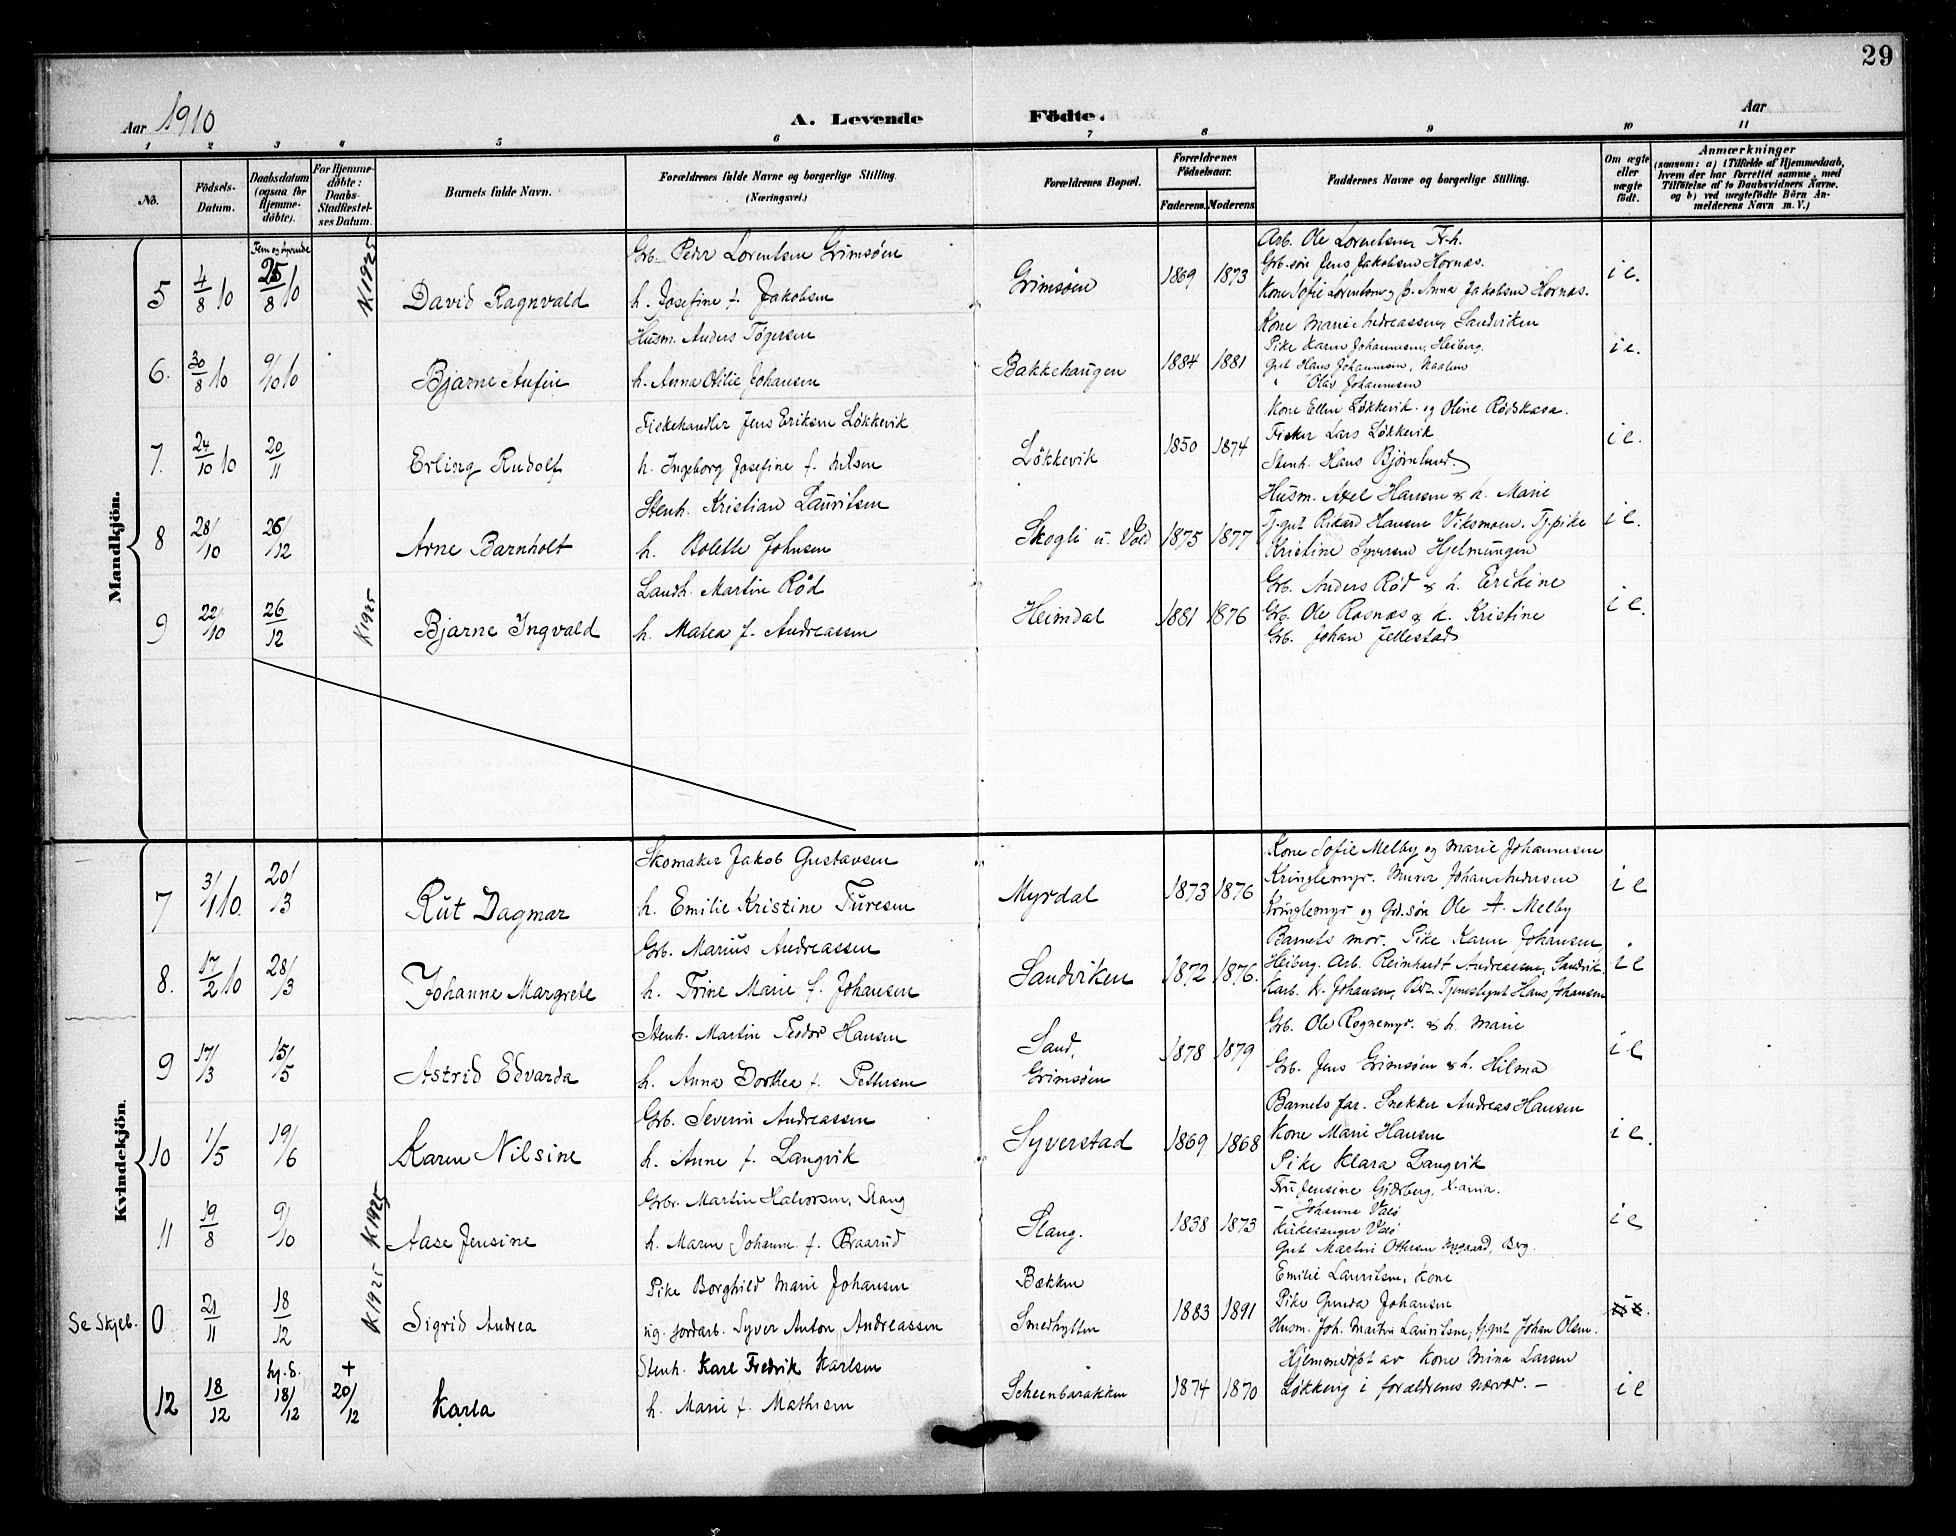 29
Aar 1910
A. Levende Födte.
Aar
1 2 3 4 5 6 7 8 9 10 11
No.
Födsels-Datum.
Daabsdatum (ogsaa for Hjemme-döbte).
For Hjemme-döbte: Daabs-Stadfæstel-ses Datum.
Barnets fulde Navn.
Forældrenes fulde Navne og borgerlige Stilling
(Næringsvei.)
Forældrenes Bopæl.
Forældrenes Födselsaar.
Faderens. Moderens.
Faddernes Navne og borgerlige Stilling.
Om ægte eller uægte födt.
Anmærkninger
(saasom: a) i Tilfælde af Hjemmedaab,
hvem der har forrettet samme, med
Tilföielse af to Daabsvidners Navne.
og b) ved uægtefödte Börn An-
melderens Navn m. V.)
Mandkjön.
5 4/8 10 Fem og tyvende 25/8 10 K 1925 David Ragnvald
Grb. Peder Lorentsen Grimsøen
h. Josefine f. Jakobsen
Grimsøen 1869 1873
Arb. Ole Lorentsen, Fr.h.
Grb.søn Jens Jakobsen Hornæs.
Kone Sofie Lorentsen og p. Anna Jakobsen Hornæs.
i e.
6. 30/8 10 9/10 10 Bjarne Anfin
Husm. Anders Tøgersen
h. Anna Otilie Johansen
Bakkehaugen 1884 1881
Kone Marie Andreassen, Sandviken
Pike Karen Johannesen, Heiberg.
Gut Hans Johannesen,
" Olav Johannesen
i e.
7. 24/10 10 20/11 Erling Rudolf
Fiskehandler Jens Eriksen Løkkevik
h. Ingeborg Josefine f. Nilsen
Løkkevik 1850 1874
Kone Ellen Løkkevik og Oline Rødskasa.
Fisker Lars Løkkevik
Stenh. Hans Bjørnlund.
i e.
8 28/10 26/12 Arne Barnholt
Stenh. Kristian Lauritsen
h. Bolette Johnsen
Skogli u. Vold 1875 1877
Husm. Axel Hansen & h. Marie
Tj.gut Rikard Hansen Viksmoen. Tj.pike
Kristine Syversen Hjelmungen
i e.
9 22/10 26/12 K 1925 Bjarne Ingvald
Landh. Martin Rød
h. Matea f. Andreassen
Heimdal 1881 1876
Grb. Anders Rød & h. Erikine
Grb. Ole Rosnæs & h. Kristine
Grb. Johan Jellestad
i e.
Kvindekjön.
7 3/1 10. 20/3 Rut Dagmar
Skomaker Jakob Gustavsen
h. Emilie Kristine Turesen
Myrdal 1873 1876
Kone Sofie Melby og Marie Johannesen
Kringlemyr. Murer Johan Andersen
Kringlemyr og Grd.søn Ole A. Melby
i e
8. 17/2 10 28/3 Johanne Margrete
Grb. Marius Andreassen
h. Trine Marie f. Johansen
Sandviken 1872 1876.
Barnets mor. Pike Karen Johansen
Heiberg. Arb. Reinhardt Andreassen, Sandvik.
Karb. K. Johansen, Tjenestegut Hans Johansen
i e
9 17/3 15/5 Astrid Edvarda
Stenh. Martin Teodor Hansen
h. Anna Dorthea f. Pettersen
Sand, Grimsøen 1878 1879
Grb. Ole Rognemyr. & h. Marie
Grb. Jens Grimsøen & h. Hilma
i e
10 1/5 19/6 Karen Nilsine
Grb. Severin Andreassen
h. Anne f. Langvik
Syverstad 1869 1868
Barnets far. Snekker Andreas Hansen
Kone Marie Hansen
Pike Klara Langvik
i e.
11 19/8 9/10 K 1925 Aase Jensine
Grbr. Martin Halvorsen, Slang
h. Maren Johanne f. Braarud
Slang. 1838 1873
Fru Jensine Gjerberg, Xania.
– Johanne Valø
Kirkesanger Valø
Gut Martin Ottersen Nygaard, Berg.
i e
Se Skjeb. 0 21/11 18/12 K 1925 Sigrid Andrea
Pike Borghild Marie Johansen
ug. jordarb. Syver Anton Andreassen
Bækken
Smedhytten 1883 1891
Emilie Lauritsen, kone
Pike Gunda Johansen
Husm. Joh. Martin Lauritsen, tj.gut Johan Olsen.
12 18/12 hj.d. 18/12 + 20/12 Karla
Stenh. Karl Fredrik Karlsen
h. Marie f. Mathisen
Scheenbarakken 1874 1870
Hjemmedøpt av Kone Mina Larsen
Løkkevig i forældrenes nærvær. –
i e